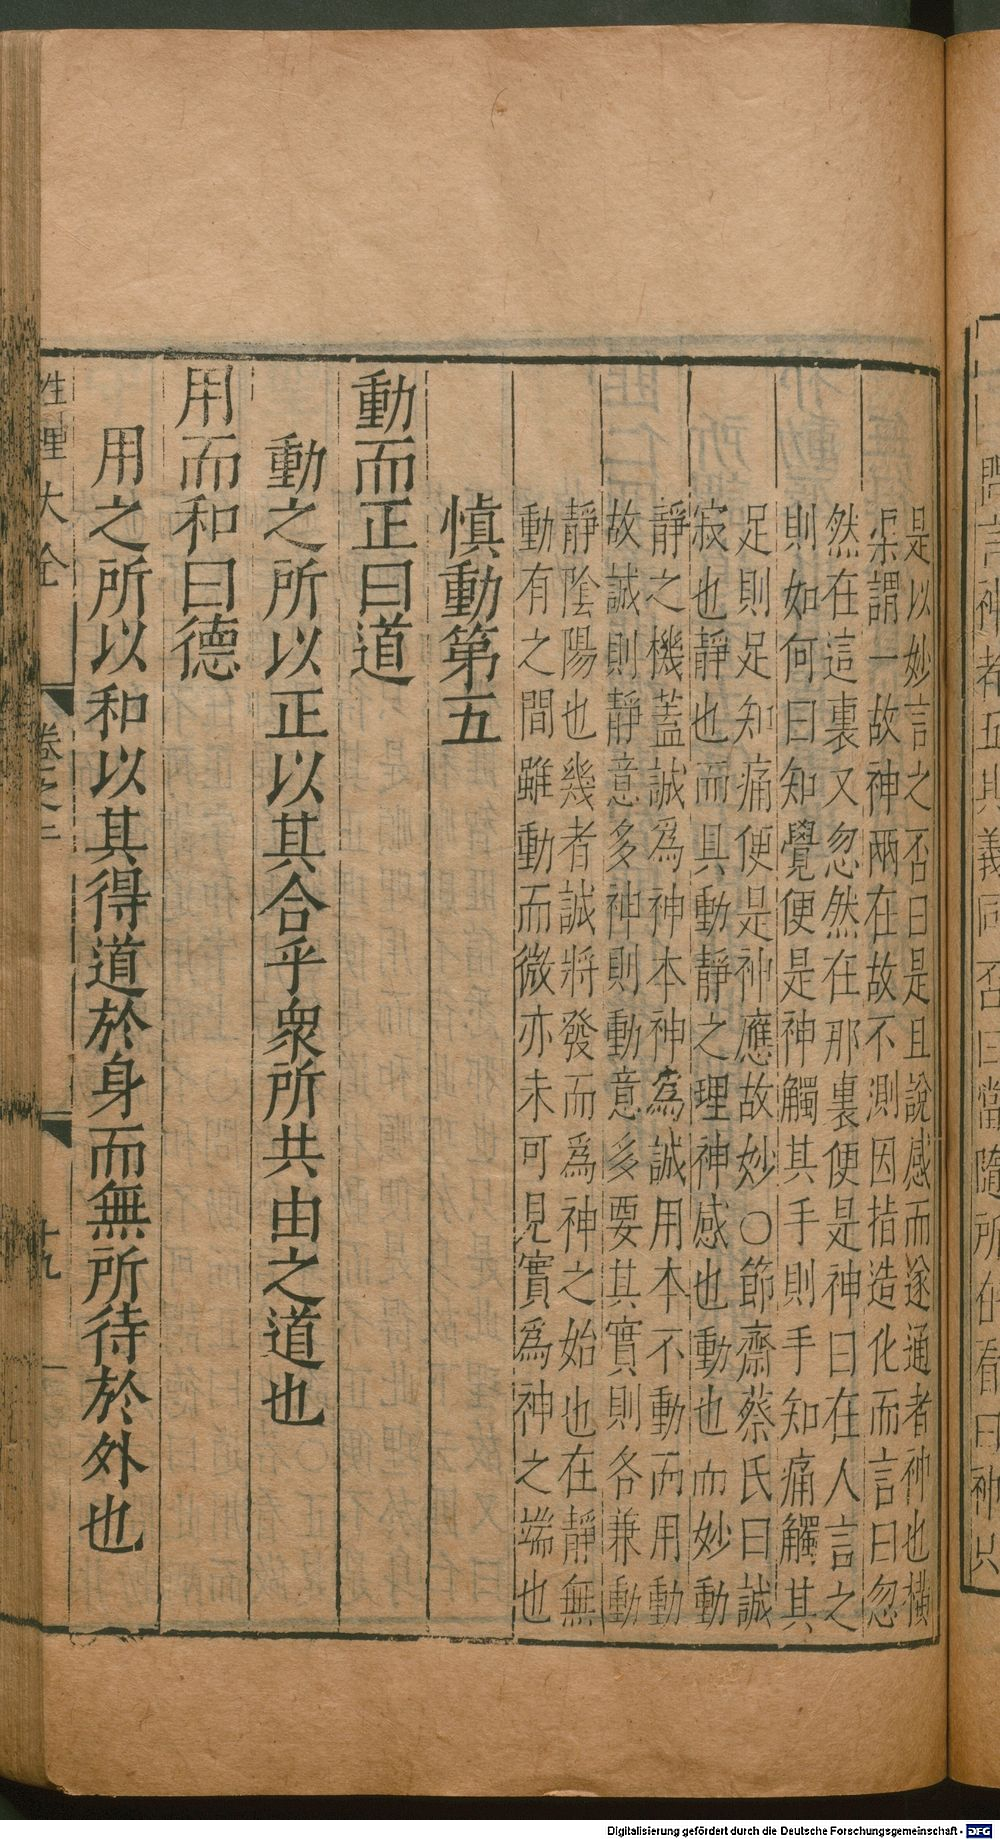 是以妙言之否曰是且說感而遂通者神也橫
渠謂一故神兩在故不測因指造化而言曰忽
然在這裏又忽然在那裏便是神曰在人言之
則如何曰知覺便是神觸其手則手知痛觸其
足則足知痛便是神應故妙○節齋蔡氏曰誠
寂也靜也而具動靜之理神感也動也而妙動
靜之機蓋誠爲神本神爲誠用本不動而用動
故誠則靜意多神則動意多要其實則各兼動
靜陰陽也幾者誠將發而爲神之始也在靜無
動有之間雖動而微亦未可見實爲神之端也
慎動第五
動而正曰道
動之所以正以其合乎衆所共由之道也
用而和曰德
用之所以和以其得道於身而無所待於外也
性理大全
卷之二
十九
Digitalisierung gefördert durch die Deutsche Forschungsgemeinschaft - DFG